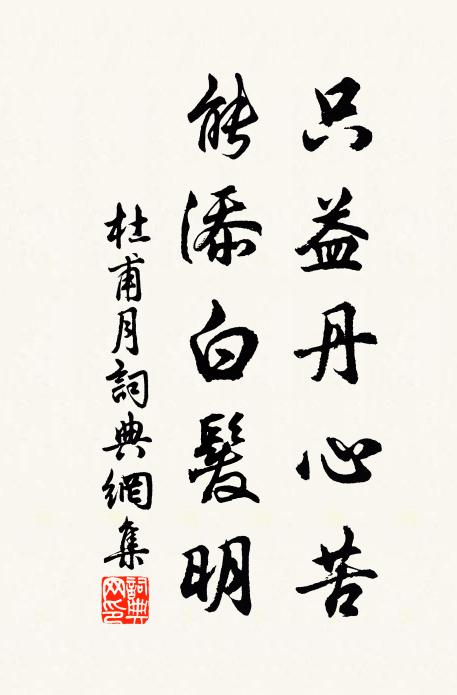 只益丹心苦
能添白髮明
杜甫月詞典網集
詞典
网印